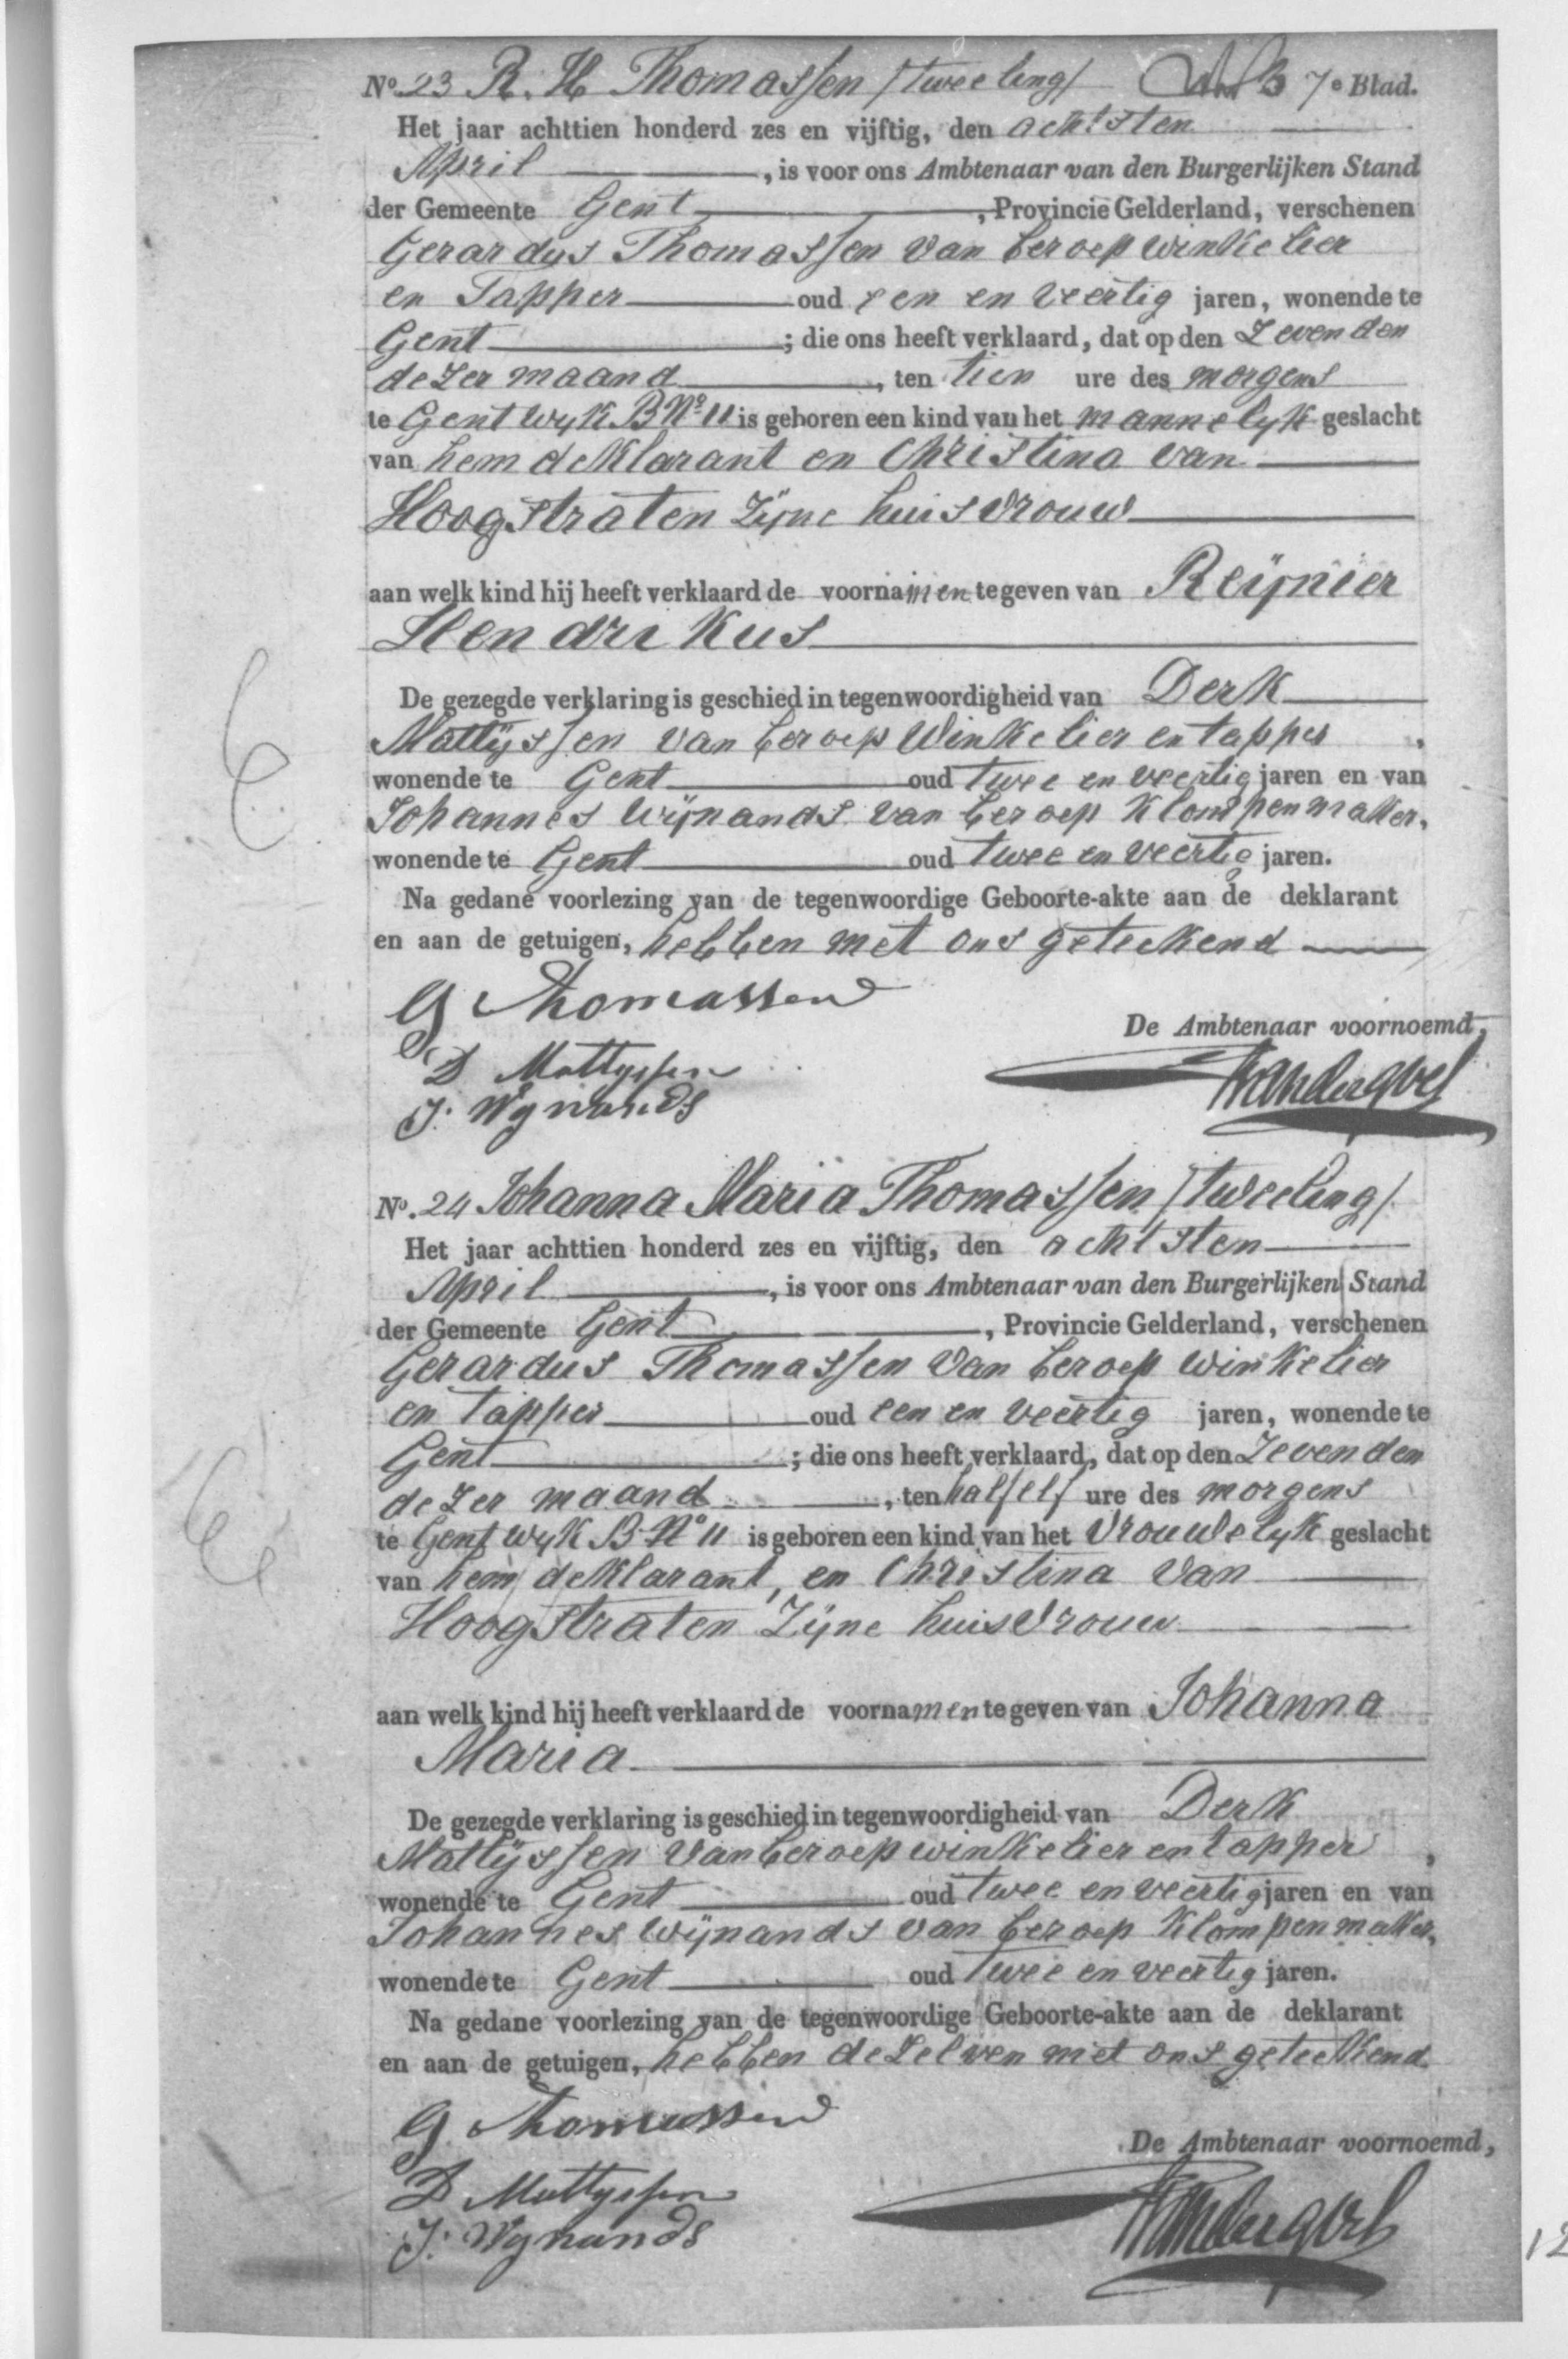 No. 23 R. H Thomassen /tweeling/ 7e Blad.
Het jaar achttien honderd zes en vijftig, den achtsten
April, is voor ons Ambtenaar van den Burgerlijken Stand
der Gemeente Gent, Provincie Gelderland, verschenen
Gerardus Thomassen van beroep winkelier
en Tapper oud een en veertig jaren, wonende te
Gent; die ons heeft verklaard, dat op den Zevenden
dezer maand, ten tien ure des morgens
te Gent wyk B No 11 is geboren een kind van het mannelyk geslacht
van hem deklarant en Christina van
Hoogstraten Zijne huisvrouw
aan welk kind hij heeft verklaard de voornamen te geven van Reijnier
Hendrikus
De gezegde verklaring is geschied in tegenwoordigheid van Derk
Mattijssen van beroep Winkelier en tapper,
wonende te Gent oud twee en veertig jaren en van
Johannes Wijnands van beroep Klompenmaker,
wonende te Gent oud twee en veertig jaren.
Na gedane voorlezing van de tegenwoordige Geboorte-akte aan de deklarant
en aan de getuigen, hebben met ons geteekend
G Thomassen
De Ambtenaar voornoemd,
D Mattyssen
J. Wynands
No. 24 Johanna Maria Thomassen /tweeling/
Het jaar achttien honderd zes en vijftig, den achtsten
April, is voor ons Ambtenaar van den Burgerlijken Stand
der Gemeente Gent, Provincie Gelderland, verschenen
Gerardus Thomassen van beroep winkelier
en tapper oud een en veertig jaren, wonende te
Gent; die ons heeft verklaard, dat op den Zevenden
dezer maand, ten half elf ure des morgens
te Gent wyk B No 11 is geboren een kind van het vrouwelyk geslacht
van hem deklarant, en Christina van
Hoogstraten Zijne huisvrouw
aan welk kind hij heeft verklaard de voornamen te geven van Johanna
Maria
De gezegde verklaring is geschied in tegenwoordigheid van Derk
Mattijssen van beroep winkelier en tapper,
wonende te Gent oud twee en veertig jaren en van
Johannes Wijnands van beroep Klompenmaker,
wonende te Gent oud twee en veertig jaren.
Na gedane voorlezing van de tegenwoordige Geboorte-akte aan de deklarant
en aan de getuigen, hebben dezelven met ons geteekend.
G. Thomassen
De Ambtenaar voornoemd,
D Mattyssen
J. Wynands
12